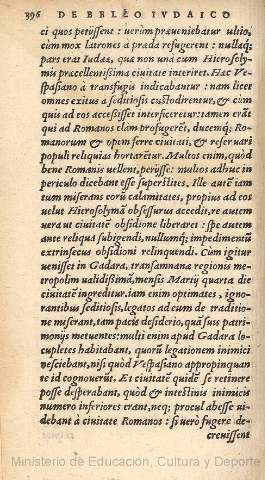 396 DE BELLO IVDAICO
ci quos petijssent : uerùm præueniebatur ultio,
cùm mox latrones à præda refugerent : nullaq́;
pars erat Iudææ, quæ non unà cum Hierosoly-
mis præcellentissima ciuitate interiret. Hæc Ve-
spasiano à transfugis indicabantur : nam licet
omnes exitus à seditiosis custodirentur, & cùm
quis ad eos accessisset interficeretur: tamen erāt
qui ad Romanos clam profugerēt, ducemq́; Ro-
manorum & opem ferre ciuitati, & reseruari
populi reliquias hortarētur. Multos enim, quòd
bene Romanis uellent, perijsse: multos adhuc in
periculo dicebant esse superstites. Ille autē iam
tum miserans eorū calamitates, propius ad eos
uelut Hierosolyma obsessurus accedit, re autem
uera ut ciuitatē obsidione liberaret : spe autem
ante reliqua subigendi, nullumq́; impedimentū
extrinsecus obsidioni relinquendi. Cùm igitur
uenisset in Gadara, transamnanæ regionis me-
tropolim ualidissimā, mensis Martij quarta die
ciuitatē ingreditur. iam enim optimates, igno-
rantibus seditiosis, legatos ad eum de traditio-
ne miserant, tam pacis desiderio, quā suis patri-
monijs metuentes: multi enim apud Gadara lo-
cupletes habitabant, quorū legationem inimici
nesciebant, nisi quòd Vespasiano appropinquan
te id cognouerūt. Et ciuitatē quidē se retinere
posse desperabant, quòd & intestinis inimicis
numero inferiores erant, neq; procul abesse ui-
debant à ciuitate Romanos : si uerò fugere de-
creuissent
Ministerio de Educación, Cultura y Deporte